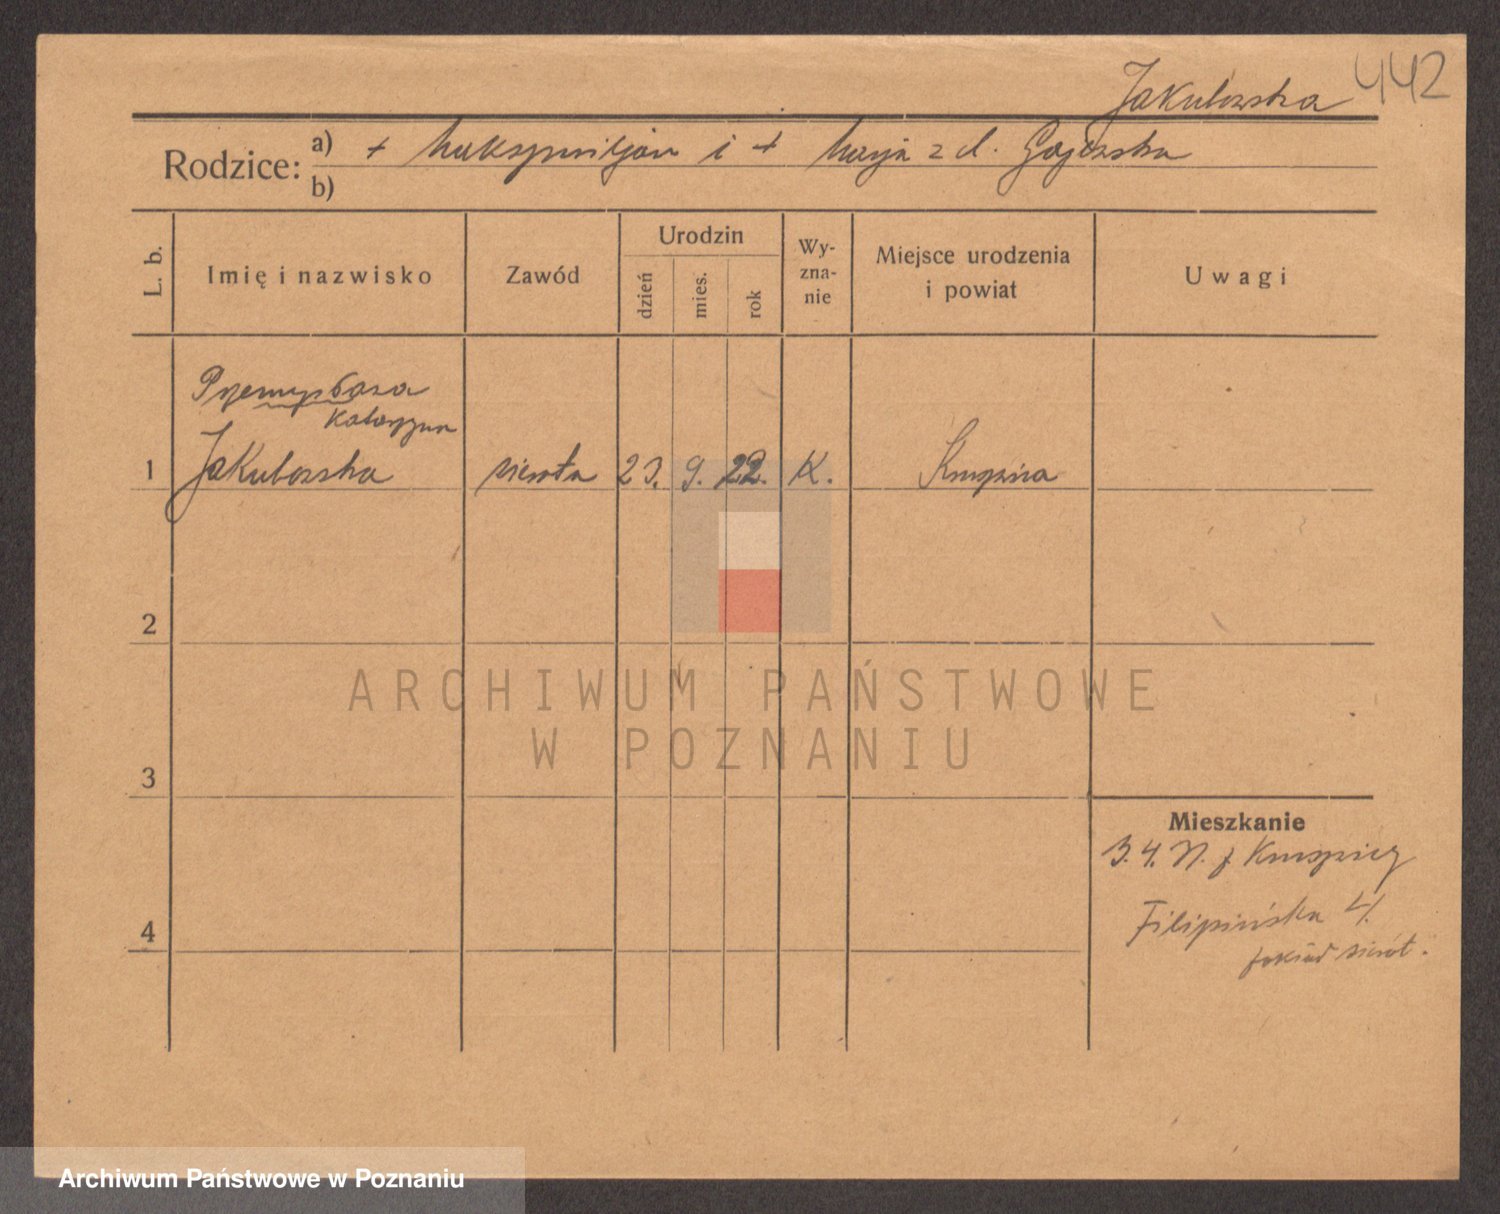 442
Jakubowska
Rodzice: a) + Maksymiljan i + Marja z d. Gajewska
b)
L. b.
Imię i nazwisko
Zawód
Urodzin
dzień
mies.
rok
Wy-
zna-
nie
Miejsce urodzenia
i powiat
Uwagi
Katarzyna
1 Jakubowska sierota 23. 9. 22. K. Kruszwica
2
3
4
Mieszkanie
3.4. z Kruszwicy
Filipińska 4.
zakład sierot.
ARCHIWUM PAŃSTWOWE
W POZNANIU
Archiwum Państwowe w Poznaniu